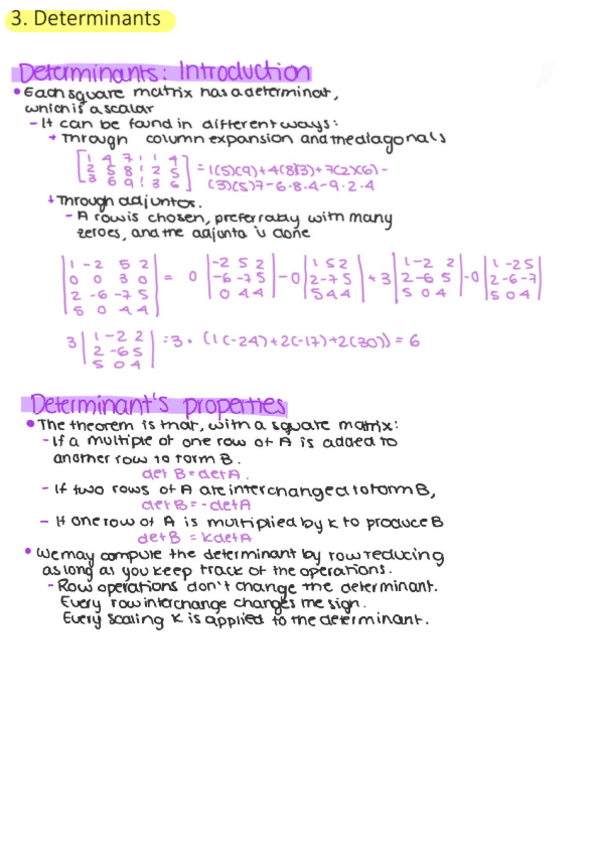 3. Determinants
Determinants: Introduction
• Each square matrix has a determinat,
which is a scalar
- It can be found in different ways:
+ Through column expansion and the diagonals
[1 4 7 ¦ 1 4
2 5 8 ¦ 2 5
3 6 9 ¦ 3 6] = 1(5)(9)+4(8)(3)+7(2)(6)-
(3)(5)7-6·8·4-9·2·4
+ Through adjuntos.
- A row is chosen, preferrably with many
zeroes, and the adjunta is done
|1 -2 5 2
0 0 3 0
2 -6 -7 5
5 0 4 4| = 0 |-2 5 2
-6 -7 5
0 4 4| -0 |1 5 2
2 -7 5
5 4 4| +3 |1 -2 2
2 -6 5
5 0 4| -0 |1 -2 5
2 -6 -7
5 0 4|
3 |1 -2 2
2 -6 5
5 0 4| = 3 · (1(-24)+2(-17)+2(30)) = 6
Determinant's properties
• The theorem is that, with a square matrix:
- If a multiple of one row of A is added to
another row to form B.
det B = det A.
- If two rows of A are interchanged to form B,
det B = - det A
- If one row of A is multiplied by k to produce B
det B = k det A
• We may compute the determinant by row reducing
as long as you keep track of the operations.
- Row operations don't change the determinant.
Every row interchange changes the sign.
Every scaling k is applied to the determinant.